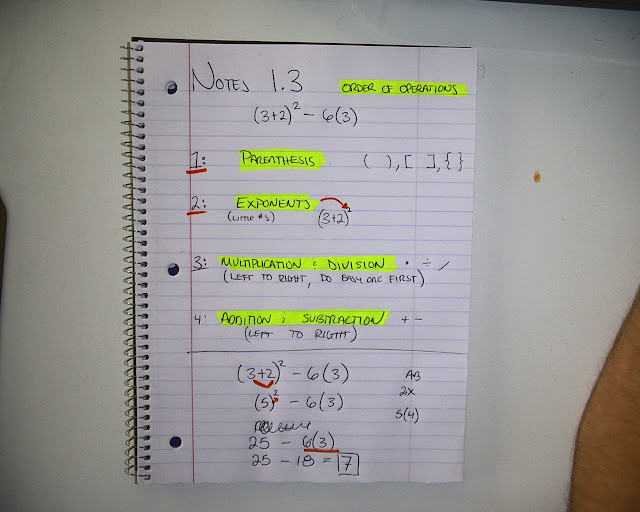 NOTES 1.3 ORDER OF OPERATIONS
(3+2)² - 6(3)
1: PARENTHESIS ( ), [ ], { }
2: EXPONENTS
(LITTLE #S) (3+2)²
3: MULTIPLICATION & DIVISION · ÷ /
(LEFT TO RIGHT, DO EASY ONE FIRST)
4: ADDITION & SUBTRACTION + -
(LEFT TO RIGHT)
(3+2)² - 6(3) AB
(5)² - 6(3) 2X
5(4)
25 - 6(3)
25 - 18 = 7